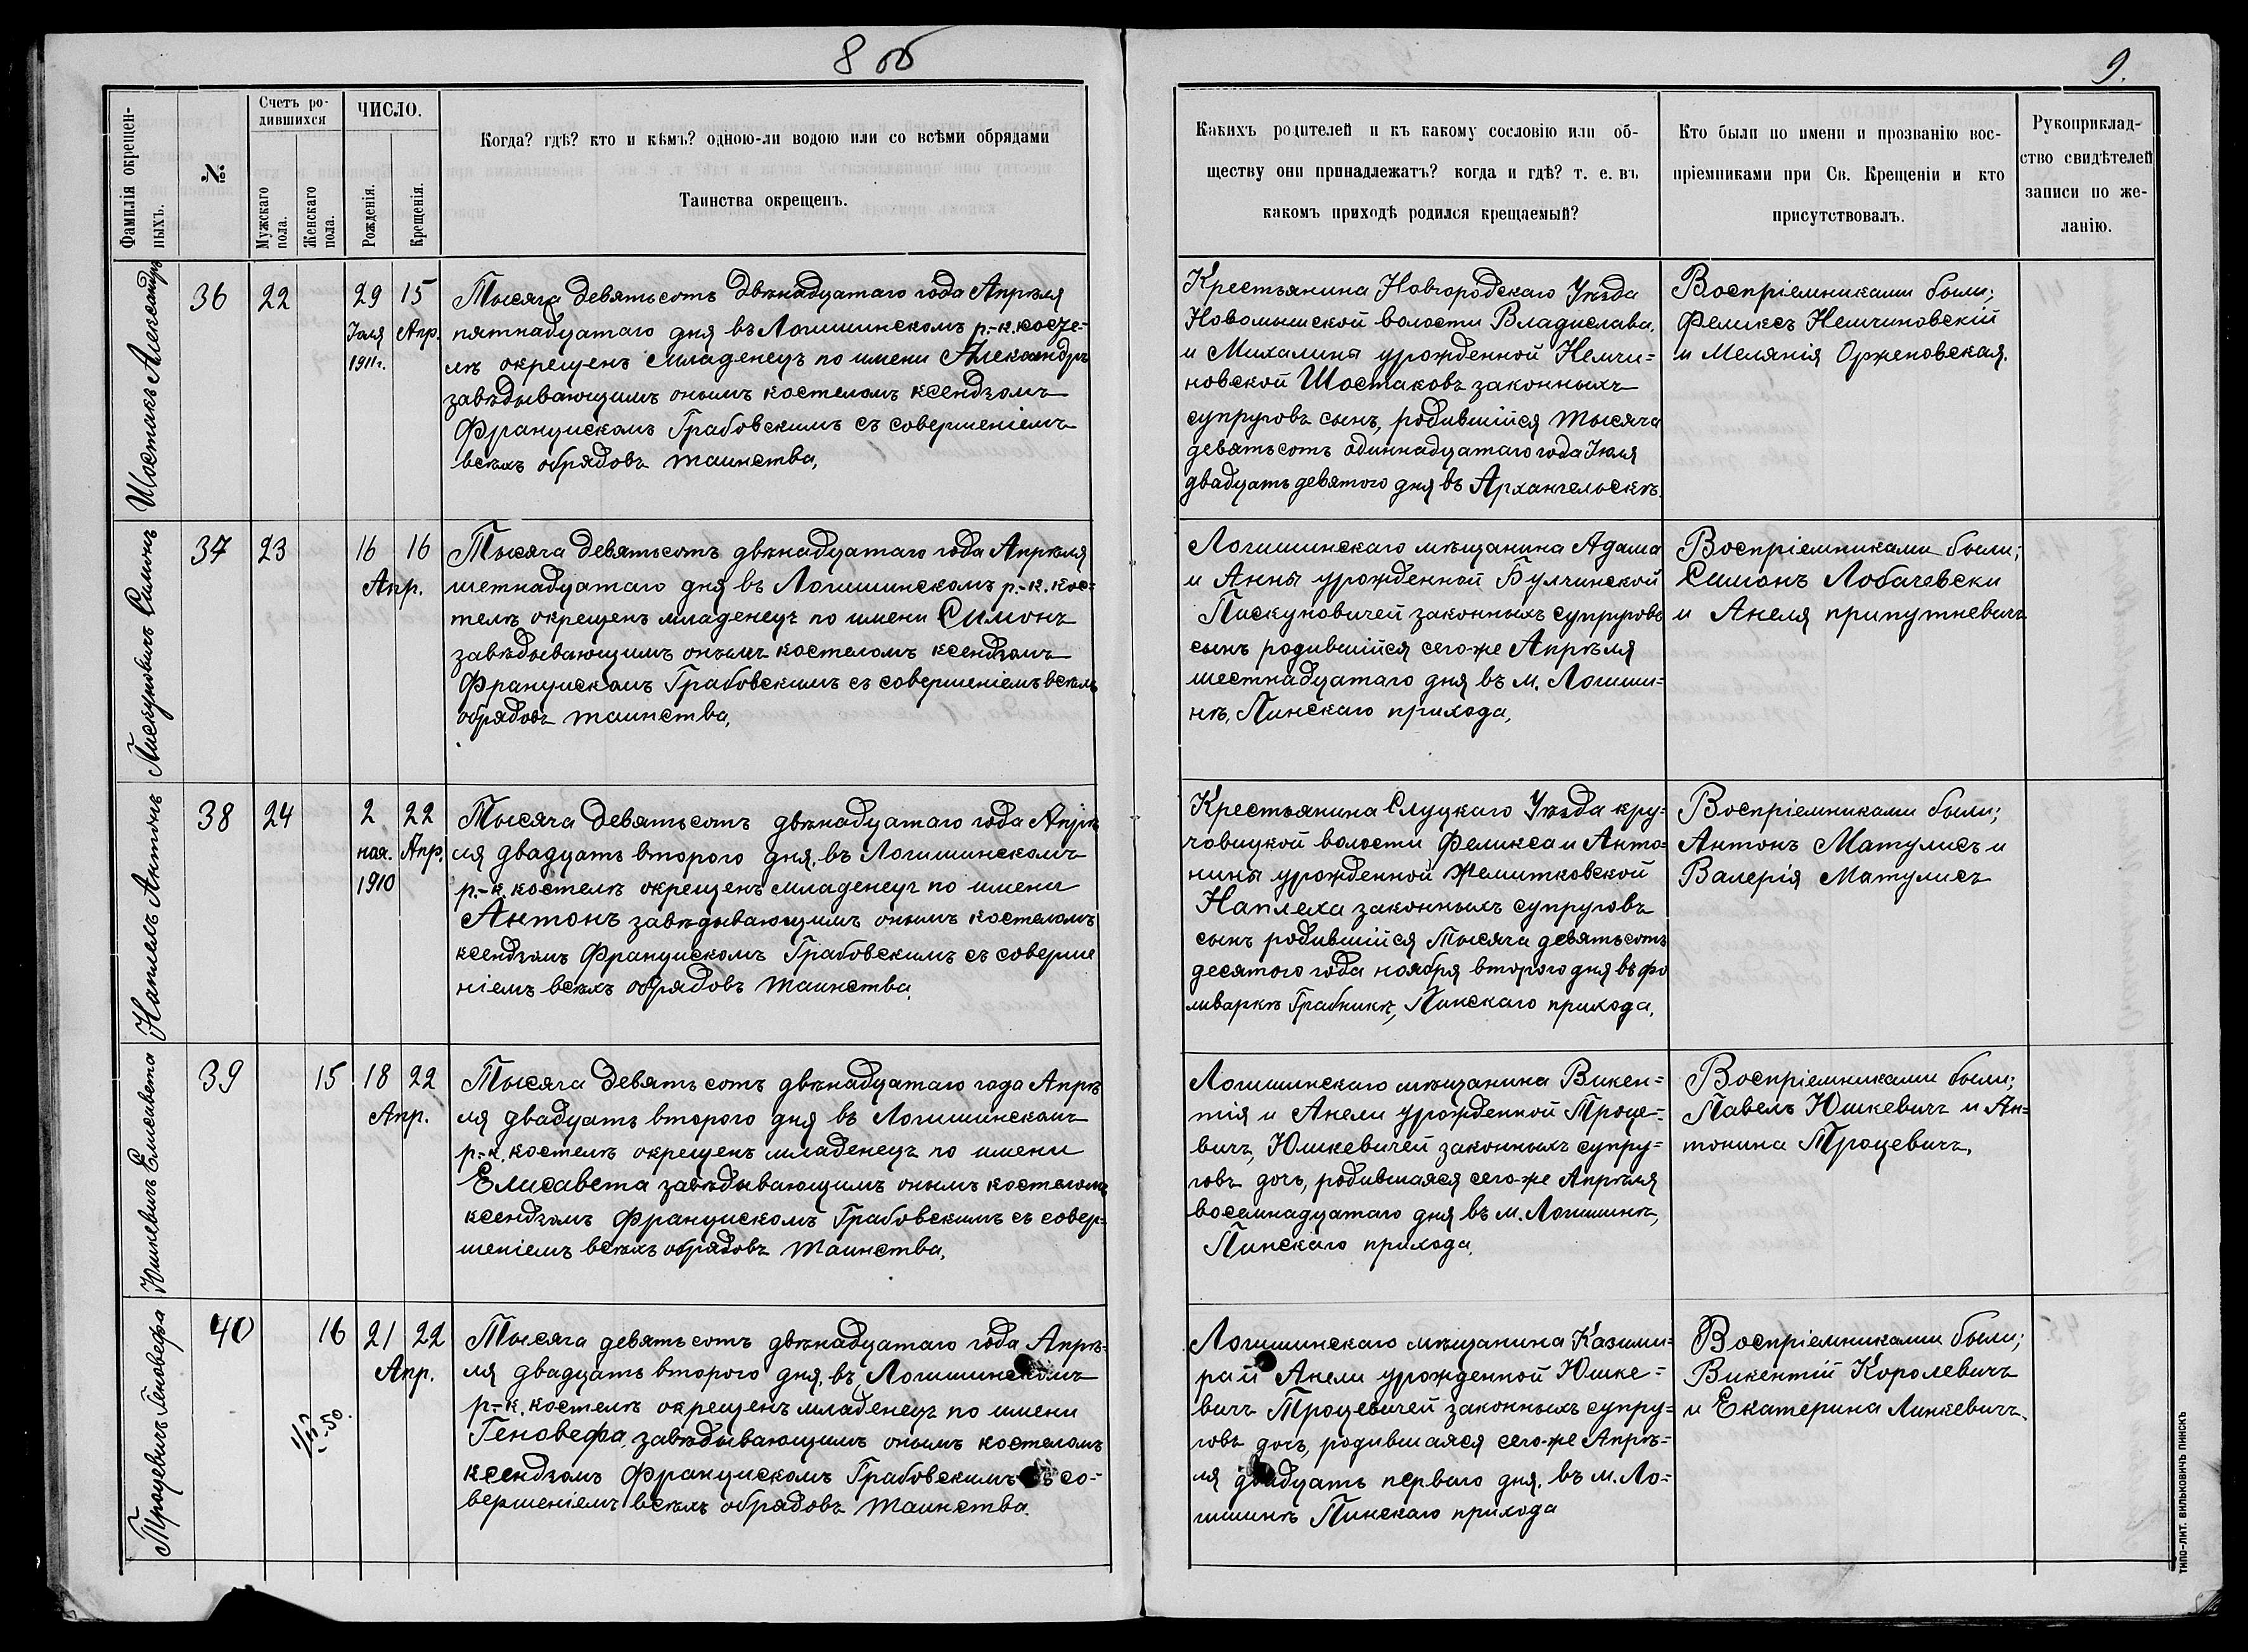 8 об
9.
Фамилія окрещен-
ныхъ.
№
Счетъ ро-
дившихся
Мужскаго
пола.
Женскаго
пола.
ЧИСЛО.
Рожденія.
Крещенія.
Когда? гдѣ? кто и кѣмъ? одною-ли водою или со всѣми обрядами
Таинства окрещенъ.
Какихъ родителей и къ какому сословію или об-
ществу они принадлежатъ? когда и гдѣ? т. е. въ
какомъ приходѣ родился крещаемый?
Кто были по имени и прозванію вос-
пріемниками при Св. Крещеніи и кто
присутствовалъ.
Рукоприклад-
ство свидѣтелей
записи по же-
ланію.
Шостакъ Александръ
36
22
29
Іюля
1911г.
15
Апр.
Тысяча девятьсотъ двѣнадцатаго года Апрѣля
пятнадцатаго дня въ Логишинскомъ р.-к. косте-
лѣ окрещенъ младенецъ по имени Александръ
завѣдывающимъ онымъ костеломъ ксендзомъ
Францискомъ Грабовскимъ съ совершеніемъ
всѣхъ обрядовъ таинства,
Крестьянина Новгородскаго Уѣзда
Новомышской волости Владислава,
и Михалины урожденной Немчи=
новской Шостаковъ законныхъ
супруговъ сынъ, родившійся тысяча
девятьсотъ одиннадцатаго года Іюля
двадцать девятого дня въ Архангельскѣ.
Воспріемниками были;
Феликсъ Немчиновскій
и Мелянія Орженовская.
Пискуновичъ Симонъ
37
23
16
16
Апр.
Тысяча девятьсотъ двѣнадцатаго года Апрѣля
шетнадцатаго дня въ Логишинскомъ р.-к. кос=
телѣ окрещенъ младенецъ по имени Симонъ
завѣдывающимъ онымъ костеломъ ксендзомъ
Францискомъ Грабовскимъ съ совершеніемъ всѣхъ
обрядовъ таинства,
Логишинскаго мѣщанина Адама
и Анны урожденной Булчинской
Пискуновичей законныхъ супруговъ
сынъ родившійся сего-же Апрѣля
шестнадцатаго дня въ м. Логиши=
нѣ, Пинскаго прихода,
Воспріемниками были;
Симонъ Лобачевски
и Анеля припутневичъ
Наплехъ Антонъ
38
24
2
ноя.
1910
22
Апр.
Тысяча девятьсотъ двѣнадцатаго года Апрѣ
ля двадцать второго дня, въ Логишинскомъ
р.-к. костелѣ окрещенъ младенецъ по имени
Антонъ завѣдывающимъ онымъ костеломъ
ксендзомъ Францискомъ Грабовскимъ съ соверше
ніемъ всѣхъ обрядовъ таинства,
Крестьянина Слуцкаго Уѣзда кру=
човицкой волости Феликса и Анто=
нины урожденной Жемитковской
Наплеха законныхъ супруговъ
сынъ родившійся тысяча девятьсотъ
десятого года ноября второго дня въ фо
льваркѣ Грабникѣ, Пинскаго прихода,
Воспріемниками были;
Антонъ Матулисъ и
Валерія Матулисъ
Юшкевичъ Елисавета
39
15
18
22
Апр.
Тысяча девятьсотъ двѣнадцатаго года Апрѣ
ля двадцать второго дня въ Логишинскомъ
р.-к. костелѣ окрещенъ младенецъ по имени
Елисавета завѣдывающимъ онымъ костеломъ
ксендзомъ Францискомъ Грабовскимъ съ совер=
шеніемъ всѣхъ обрядовъ таинства,
Логишинскаго мѣщанина Викен=
тія и Анели урожденной Троце=
вичъ, Юшкевичей законныхъ супру=
говъ дочь, родившаяся сего-же Апрѣля
восемнадцатаго дня въ м. Логишинѣ,
Пинскаго прихода,
Воспріемниками были;
Павелъ Юшкевичъ и Ан=
тонина Троцевичъ,
Троцевичъ Геновефа
40
16
21
22
Апр.
Тысяча девятьсотъ двѣнадцатаго года Апрѣ=
ля двадцать второго дня, въ Логишинскомъ
р.-к. костелѣ окрещенъ младенецъ по имени
Геновефа, завѣдывающимъ онымъ костеломъ
ксендзомъ Францискомъ Грабовскимъ съ со=
вершеніемъ всѣхъ обрядовъ таинства.
Логишинскаго мѣщанина Казими=
ра и Анели урожденной Юшке=
вичъ Троцевичей законныхъ супру=
говъ дочь, родившаяся сего-же Апрѣ=
ля двадцать перваго дня, въ м. Ло=
гишинѣ Пинскаго прихода
Воспріемниками были;
Викентій Королевичъ
и Екатерина Линкевичъ.
ТИПО-ЛИТ. ВИЛЬКОВИЧЪ ПИНСКЪ